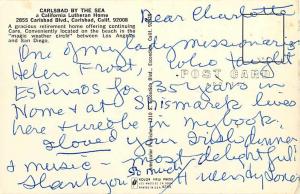 CARLSBAD BY THE SEA
a California Lutheran Home
2855 Carlsbad Blvd., Carlsbad, Calif. 92008
A gracious retirement home offering continuing
Care. Conveniently located on the beach in the
"magic weather circle" between Los Angeles
and San Diego.
POST CARD
Dear Charlotte
One of my lady missionaries
Helen Frost who taught
Eskimos for 35 years in
Nome & at Bismarck lives
here & we're in my book.
I loved your Irish dinner
& music - Most delightful
Thank you so much
COLOR VIEW PRESS